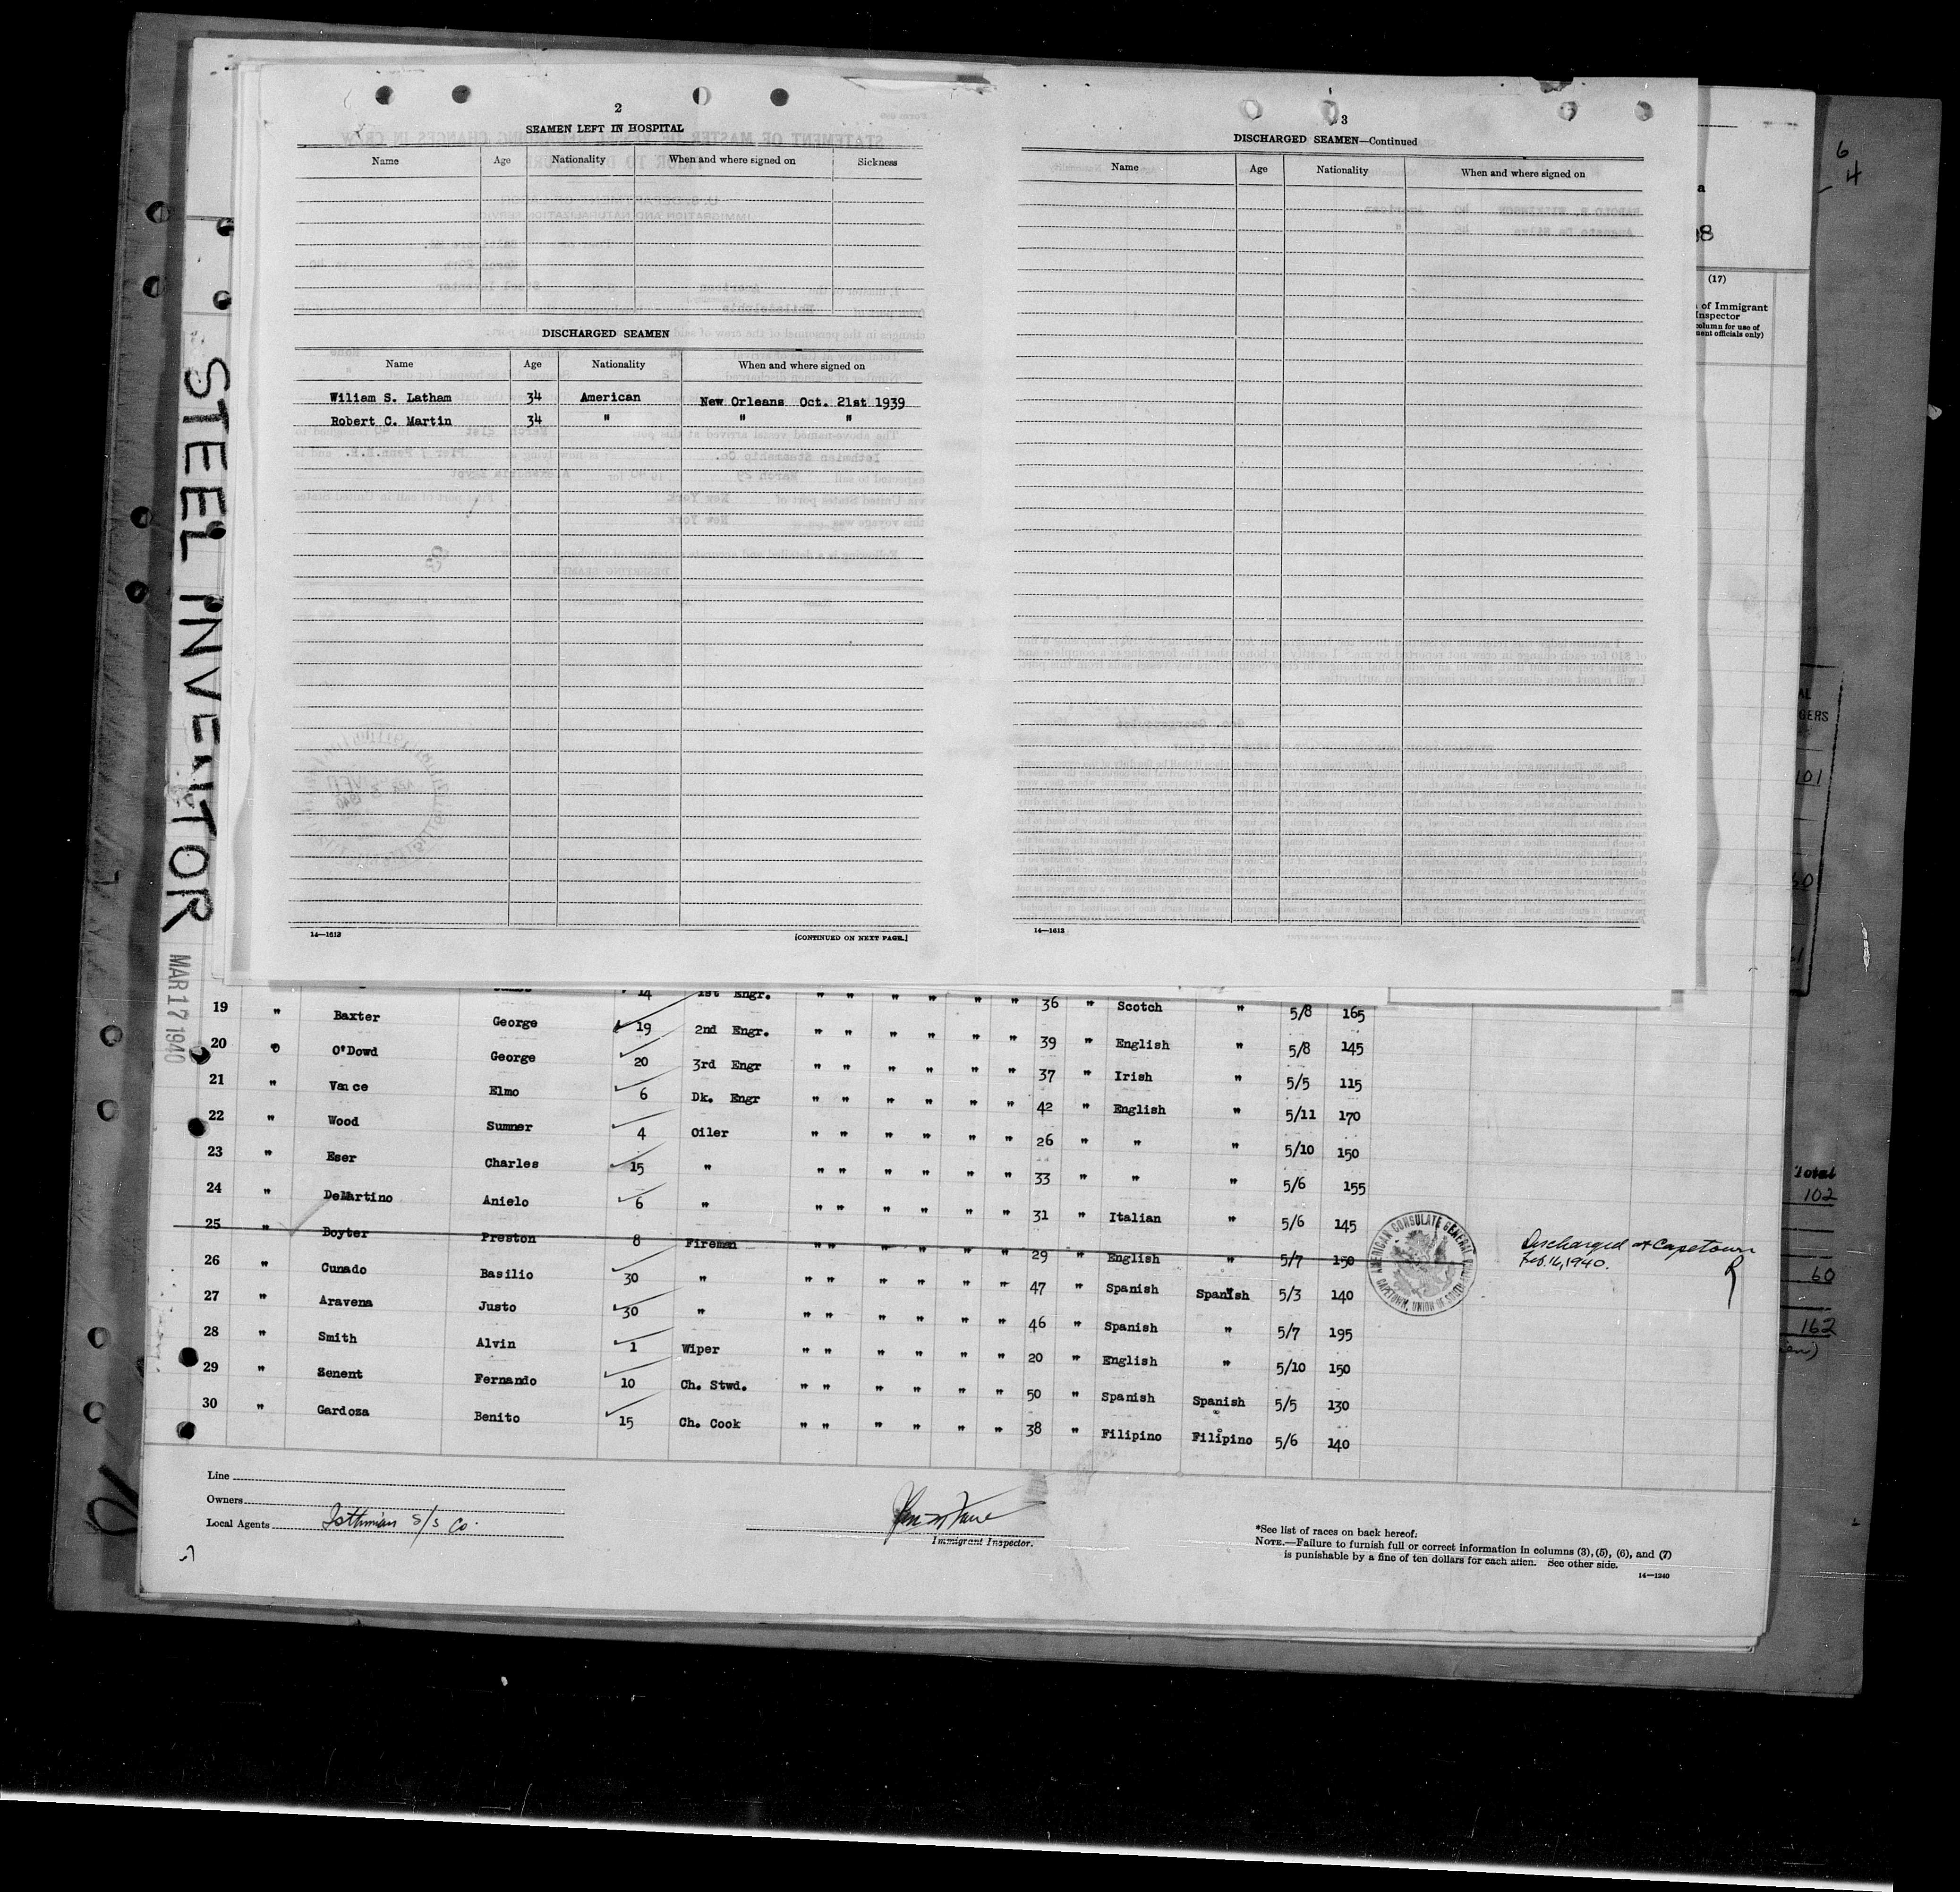 2
SEAMEN LEFT IN HOSPITAL
Name Age Nationality When and where signed on Sickness
DISCHARGED SEAMEN
Name Age Nationality When and where signed on
Wiliam S. Latham 34 American New Orleans Oct. 21st 1939
Robert C. Martin 34 " " "
14—1613 [CONTINUED ON NEXT PAGE.]
3
DISCHARGED SEAMEN—Continued
Name Age Nationality When and where signed on
14—1613
6
4
(17)
of Immigrant
Inspector
column for use of
ment officials only)
STEEL INVENTOR
MAR 17 1940
14 1st Engr. " " " " " " 36 " Scotch " 5/8 165
19 " Baxter George 19 2nd Engr. " " " " " " 39 " English " 5/8 145
20 " O'Dowd George 20 3rd Engr " " " " " " 37 " Irish " 5/5 115
21 " Vance Elmo 6 Dk. Engr " " " " " " 42 " English " 5/11 170
22 " Wood Sumner 4 Oiler " " " " " " 26 " " " 5/10 150
23 " Eser Charles 15 " " " " " " " 33 " " " 5/6 155
24 " DeMartino Anielo 6 " " " " " " " 31 " Italian " 5/6 145
25 " Boyter Preston 8 Fireman " " " " " " 29 " English " 5/7 150
Discharged at Capetown
Feb. 16, 1940.
AMERICAN CONSULATE GENERAL
CAPETOWN, UNION OF SOUTH AFRICA
26 " Cunado Basilio 30 " " " " " " " 47 " Spanish Spanish 5/3 140
27 " Aravena Justo 30 " " " " " " " 46 " Spanish " 5/7 195
28 " Smith Alvin 1 Wiper " " " " " " 20 " English " 5/10 150
29 " Senent Fernando 10 Ch. Stwd. " " " " " " 50 " Spanish Spanish 5/5 130
30 " Gardoza Benito 15 Ch. Cook " " " " " " 38 " Filipino Filipino 5/6 140
Total
102
60
162
Line
Owners
Local Agents Isthmian S/S Co.
Immigrant Inspector.
*See list of races on back hereof.
NOTE.—Failure to furnish full or correct information in columns (3), (5), (6), and (7)
is punishable by a fine of ten dollars for each alien. See other side.
14—1240